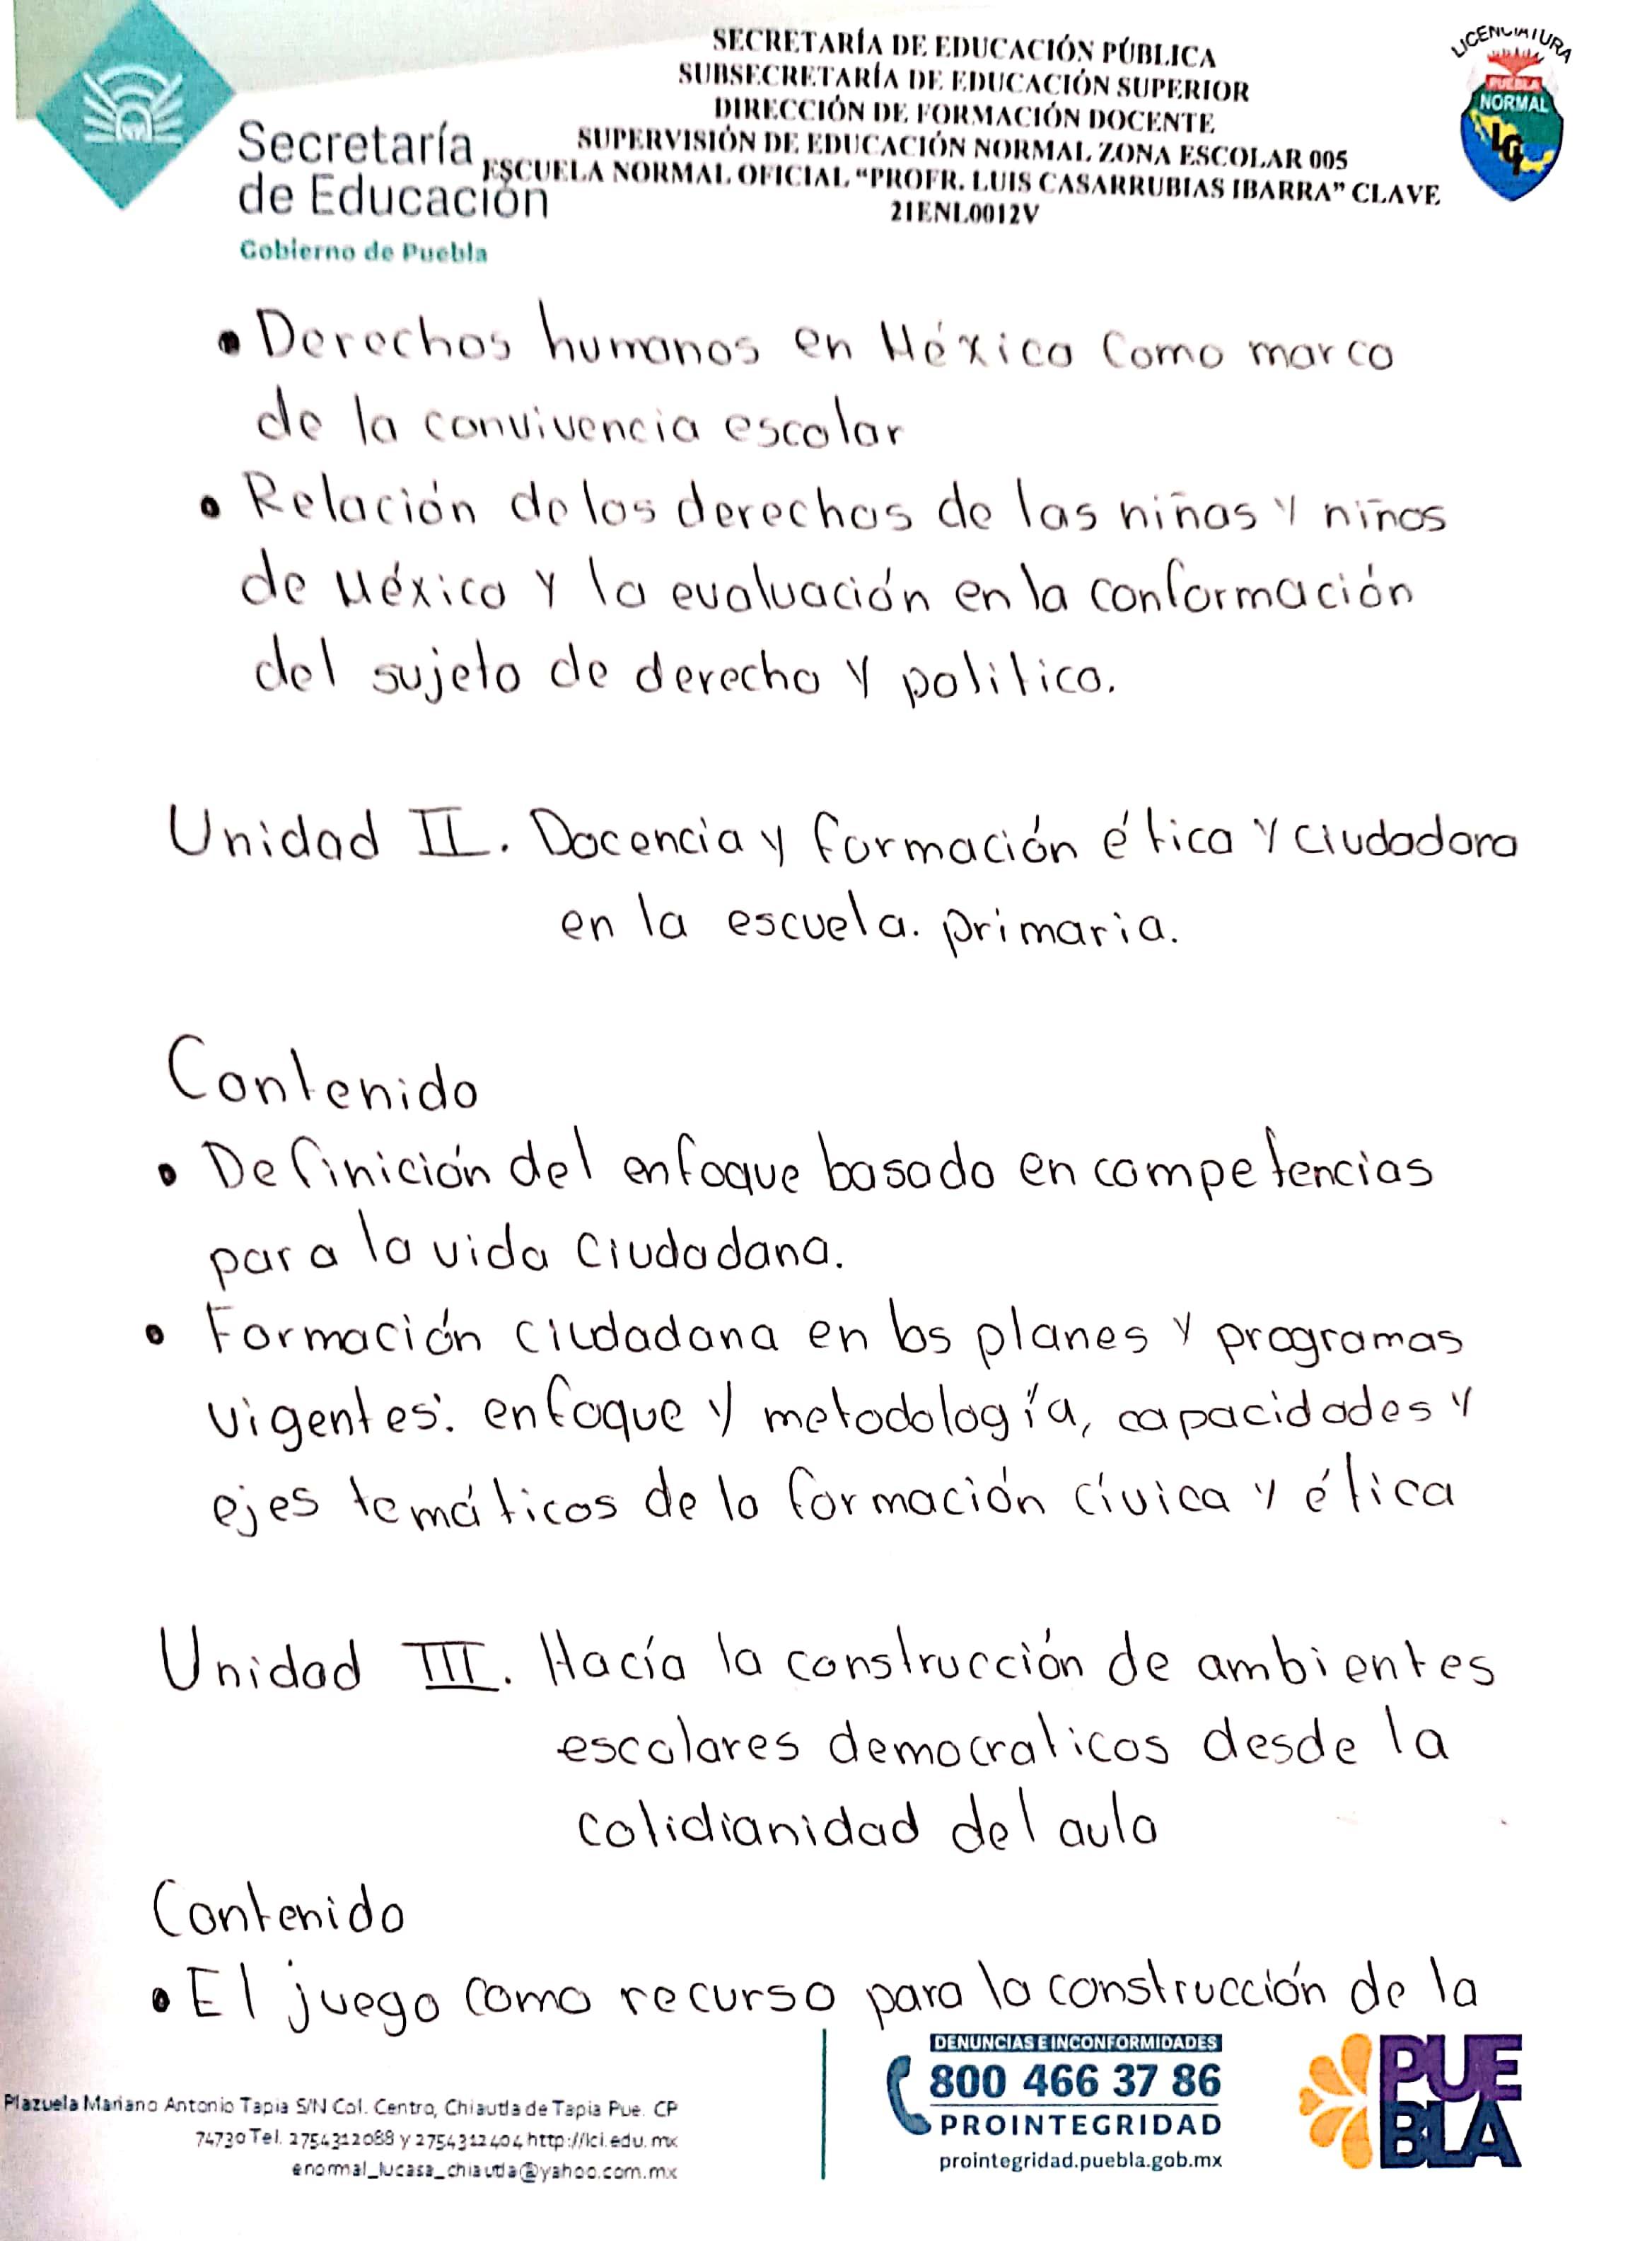 SECRETARÍA DE EDUCACIÓN PÚBLICA
SUBSECRETARÍA DE EDUCACIÓN SUPERIOR
DIRECCIÓN DE FORMACIÓN DOCENTE
SUPERVISIÓN DE EDUCACIÓN NORMAL ZONA ESCOLAR 005
ESCUELA NORMAL OFICIAL “PROFR. LUIS CASARRUBIAS IBARRA” CLAVE
21ENL0012V
Secretaría
de Educación
Gobierno de Puebla
LICENCIATURA
PUEBLA
NORMAL
LCI
• Derechos humanos en México como marco
de la convivencia escolar
• Relación de los derechos de las niñas y niños
de México y la evaluación en la conformación
del sujeto de derecho y politico.
Unidad II. Docencia y formación ética y ciudadana
en la escuela. primaria.
Contenido
• Definición del enfoque basado en competencias
para la vida ciudadana.
• Formación ciudadana en los planes y programas
vigentes: enfoque y metodología, capacidades y
ejes temáticos de la formación cívica y ética
Unidad III. Hacía la construcción de ambientes
escolares democraticos desde la
cotidianidad del aula
Contenido
• El juego como recurso para la construcción de la
Plazuela Mariano Antonio Tapia S/N Col. Centro, Chiautla de Tapia Pue. CP
74730 Tel. 2754312088 y 2754312404 http://lci.edu.mx
enormal_lucasa_chiautla@yahoo.com.mx
DENUNCIAS E INCONFORMIDADES
800 466 37 86
PROINTEGRIDAD
prointegridad.puebla.gob.mx
PUE
BLA